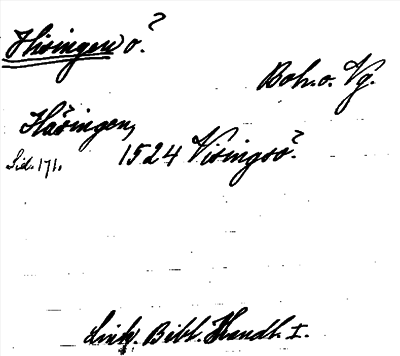 Hisingen ö?
Boh. o. Vg.
Håsingen,
Sid. 171. 1524 Visingsö?
Link. Bibl. Handl. I.